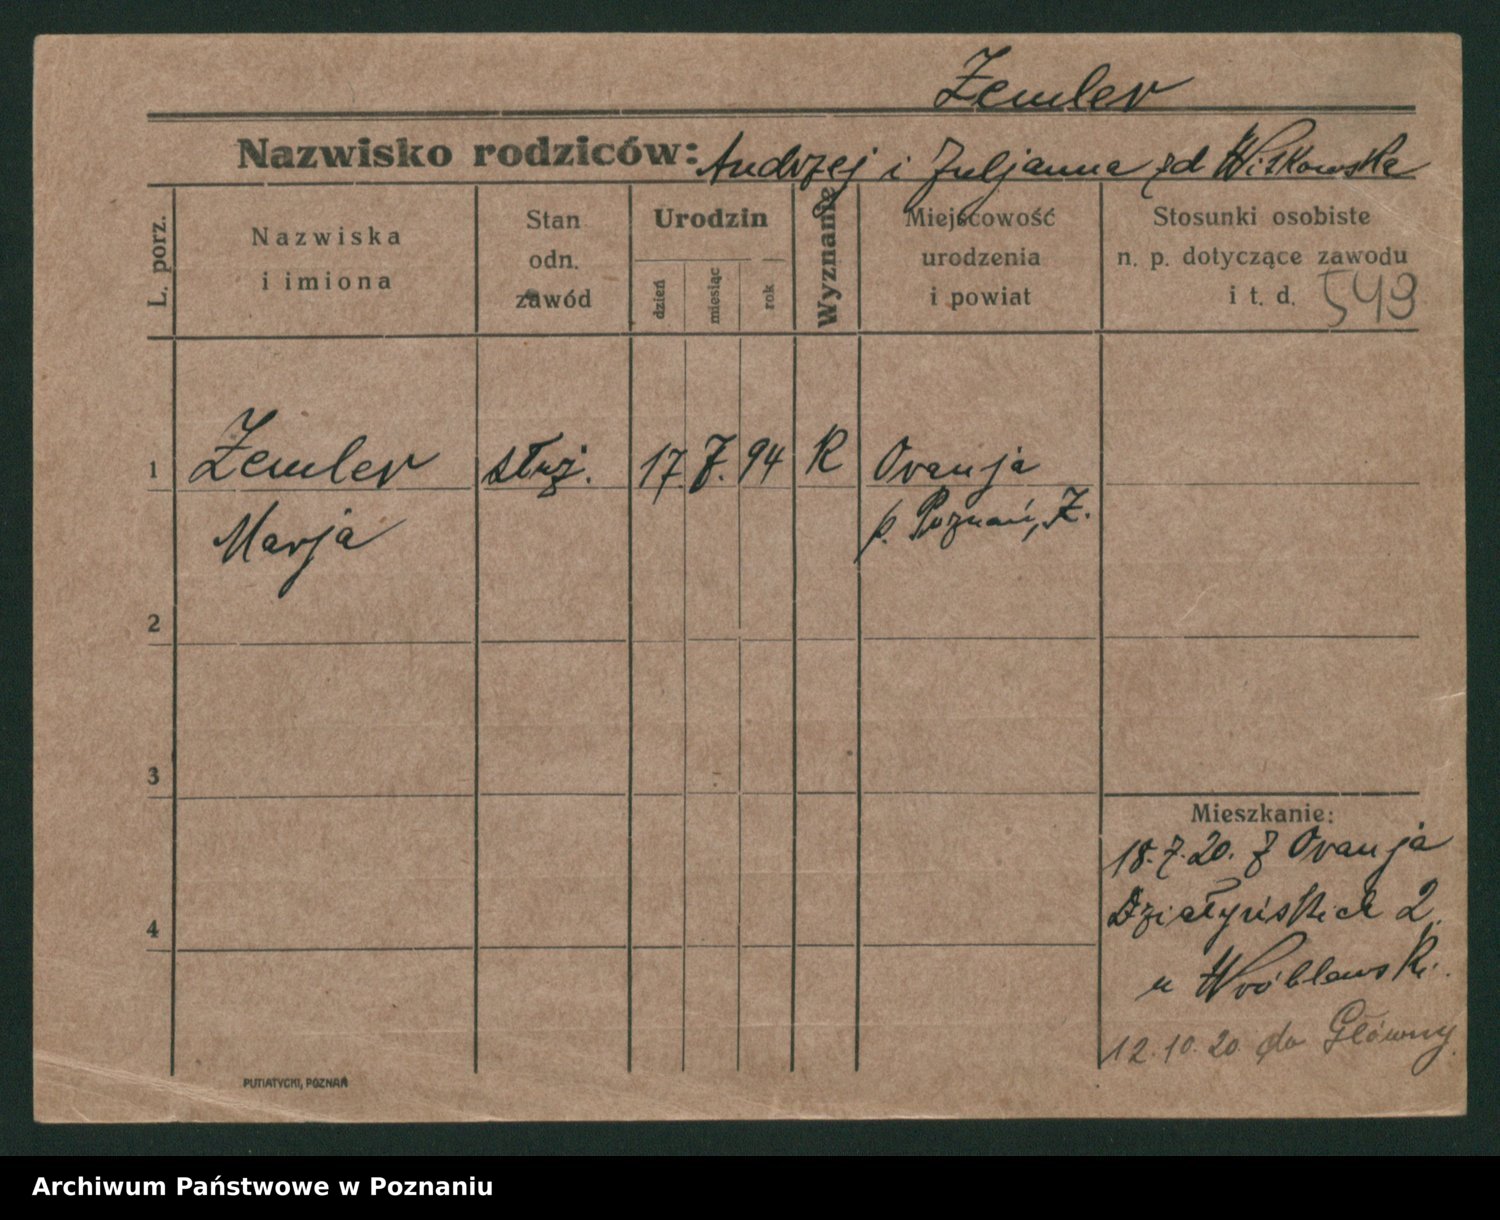 Żemler
Nazwisko rodziców: Andrzej i Juljanna zd Witkowska
L. porz.
Nazwiska
i imiona
Stan
odn.
zawód
Urodzin
dzień
miesiąc
rok
Wyznanie
Miejscowość
urodzenia
i powiat
Stosunki osobiste
n. p. dotyczące zawodu
i t. d. 549
1 Żemler służ. 17. 7. 94 R Oranja
Marja p. Poznań, Z.
2
3
4
Mieszkanie:
18.7.20. z Oranja
Działyńskich 2.
u Wróblewski.
12.10.20 do Główny.
PUTIATYCKI, POZNAŃ
Archiwum Państwowe w Poznaniu